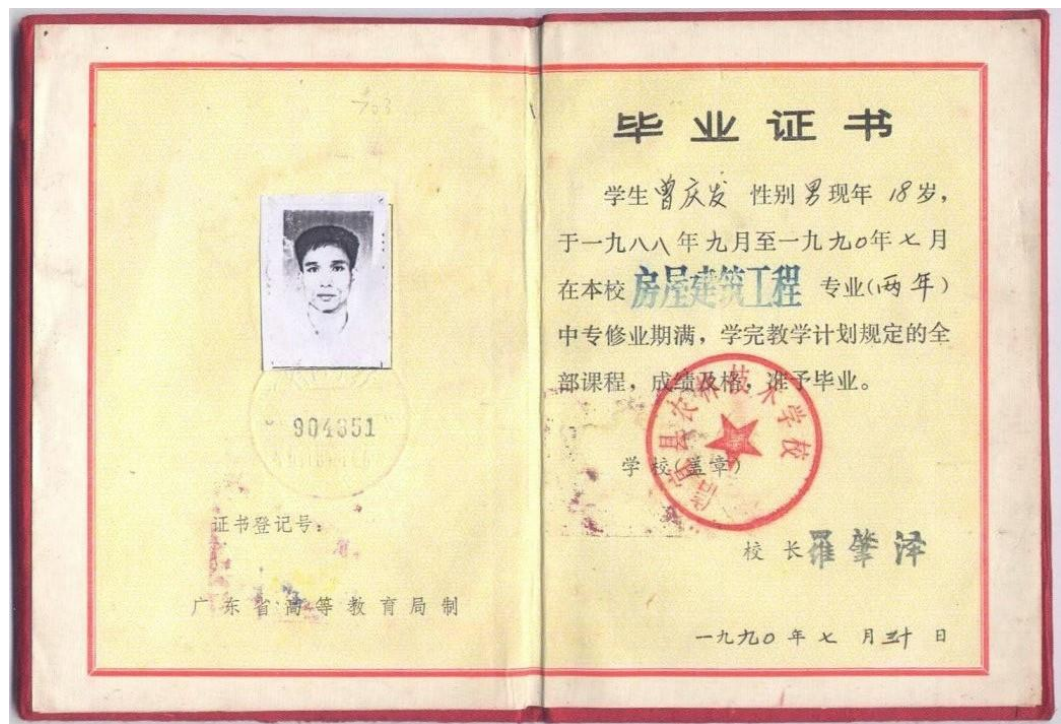 904351
证书登记号：
广东省高等教育局制
毕业证书
学生曾庆发 性别男现年18岁，
于一九八八年九月至一九九0年七月
在本校房屋建筑工程 专业(两年)
中专修业期满，学完教学计划规定的全
部课程，成绩及格，准予毕业。
信宜县农科技术学校
学校(盖章)
校长 羅肇泽
一九九0年七月三十日